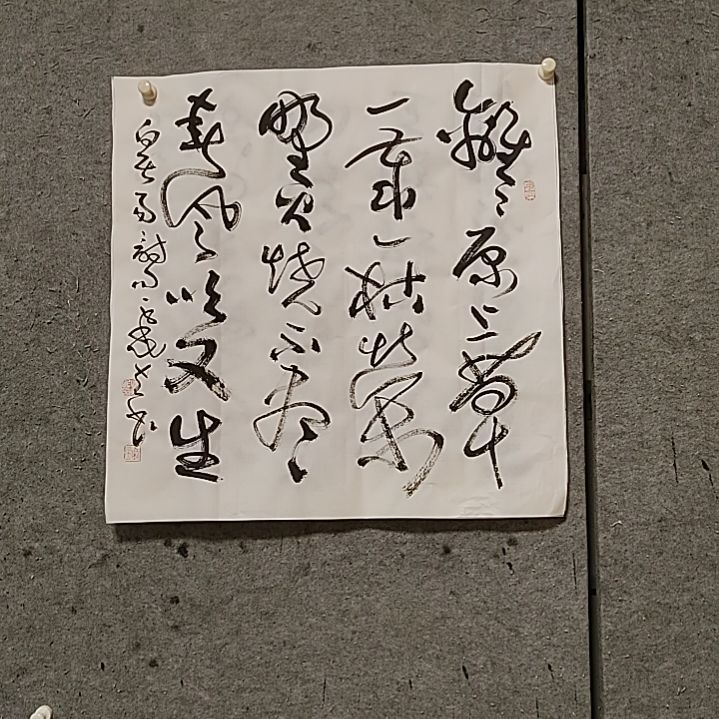 離離原上草
一歲一枯榮
野火燒不盡
春風吹又生
白居易詩